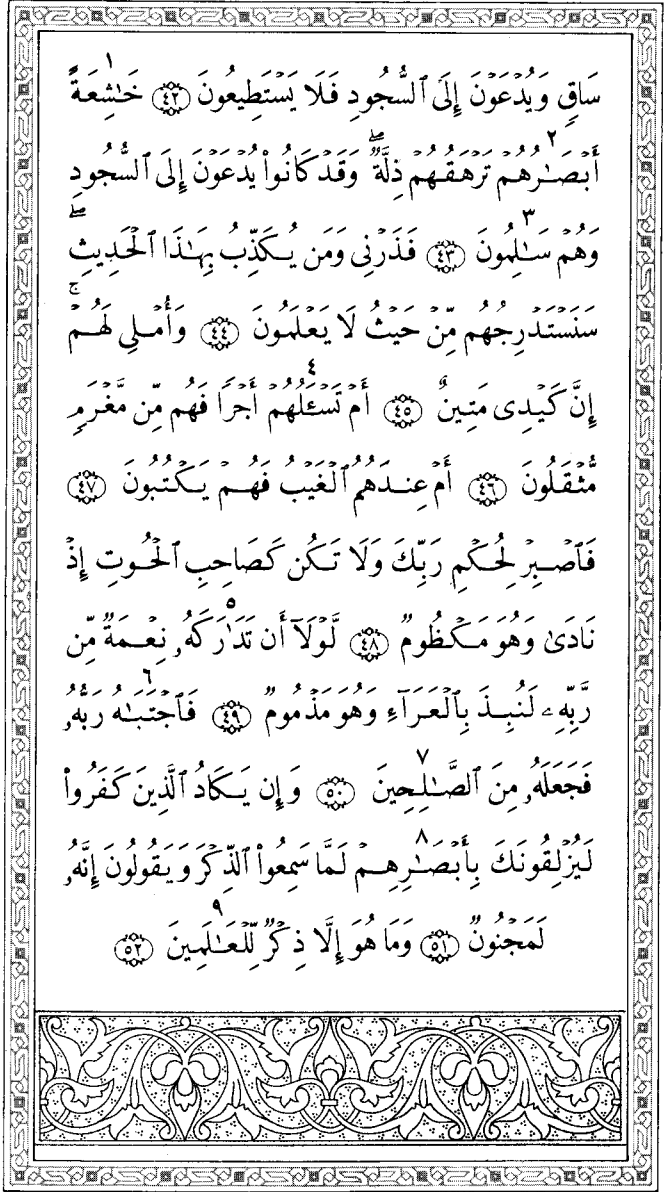 ١
سَاقٍ وَيُدْعَوْنَ إِلَى ٱلسُّجُودِ فَلَا يَسْتَطِيعُونَ ۝٤٢ خَـٰشِعَةً
٢
أَبْصَـٰرُهُمْ تَرْهَقُهُمْ ذِلَّةٌ ۖ وَقَدْ كَانُوا۟ يُدْعَوْنَ إِلَى ٱلسُّجُودِ
٣
وَهُمْ سَـٰلِمُونَ ۝٤٣ فَذَرْنِى وَمَن يُكَذِّبُ بِهَـٰذَا ٱلْحَدِيثِ ۖ
سَنَسْتَدْرِجُهُم مِّنْ حَيْثُ لَا يَعْلَمُونَ ۝٤٤ وَأُمْلِى لَهُمْ ۚ
٤
إِنَّ كَيْدِى مَتِينٌ ۝٤٥ أَمْ تَسْـَٔلُهُمْ أَجْرًا فَهُم مِّن مَّغْرَمٍ
مُّثْقَلُونَ ۝٤٦ أَمْ عِندَهُمُ ٱلْغَيْبُ فَهُمْ يَكْتُبُونَ ۝٤٧
فَٱصْبِرْ لِحُكْمِ رَبِّكَ وَلَا تَكُن كَصَاحِبِ ٱلْحُوتِ إِذْ
٥
نَادَىٰ وَهُوَ مَكْظُومٌ ۝٤٨ لَّوْلَآ أَن تَدَٰرَكَهُۥ نِعْمَةٌ مِّن
٦
رَّبِّهِۦ لَنُبِذَ بِٱلْعَرَآءِ وَهُوَ مَذْمُومٌ ۝٤٩ فَٱجْتَبَـٰهُ رَبُّهُۥ
٧
فَجَعَلَهُۥ مِنَ ٱلصَّـٰلِحِينَ ۝٥٠ وَإِن يَكَادُ ٱلَّذِينَ كَفَرُوا۟
٨
لَيُزْلِقُونَكَ بِأَبْصَـٰرِهِمْ لَمَّا سَمِعُوا۟ ٱلذِّكْرَ وَيَقُولُونَ إِنَّهُۥ
٩
لَمَجْنُونٌ ۝٥١ وَمَا هُوَ إِلَّا ذِكْرٌ لِّلْعَـٰلَمِينَ ۝٥٢